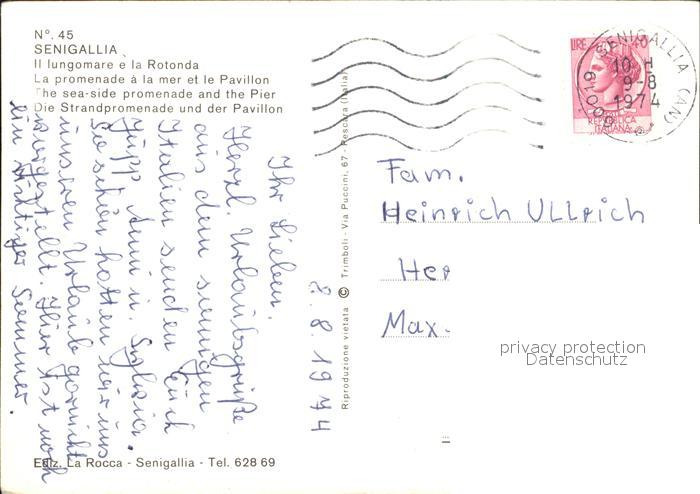 Nº. 45
SENIGALLIA
Il lungomare e la Rotonda
La promenade à la mer et le Pavillon
The sea-side promenade and the Pier
Die Strandpromenade und der Pavillon
LIRE 40
REPUBBLICA
ITALIANA
60019 SENIGALLIA (AN)
10-H
9-8
1974
2.8.1974
Ihr Lieben.
Herzl. Urlaubsgrüße
aus dem sonnigen
Italien senden Euch
Jupp Anni u. Sylvia.
So schön hatten wir uns
unseren Urlaub garnicht
vorgestellt. Hier ist noch
ein richtiger Sommer.
Riproduzione vietata © Trimboli - Via Puccini, 67 - Pescara (Italia)
Fam.
Heinrich Ullrich
Her
Max.
privacy protection
Datenschutz
Ediz. La Rocca - Senigallia - Tel. 628 69